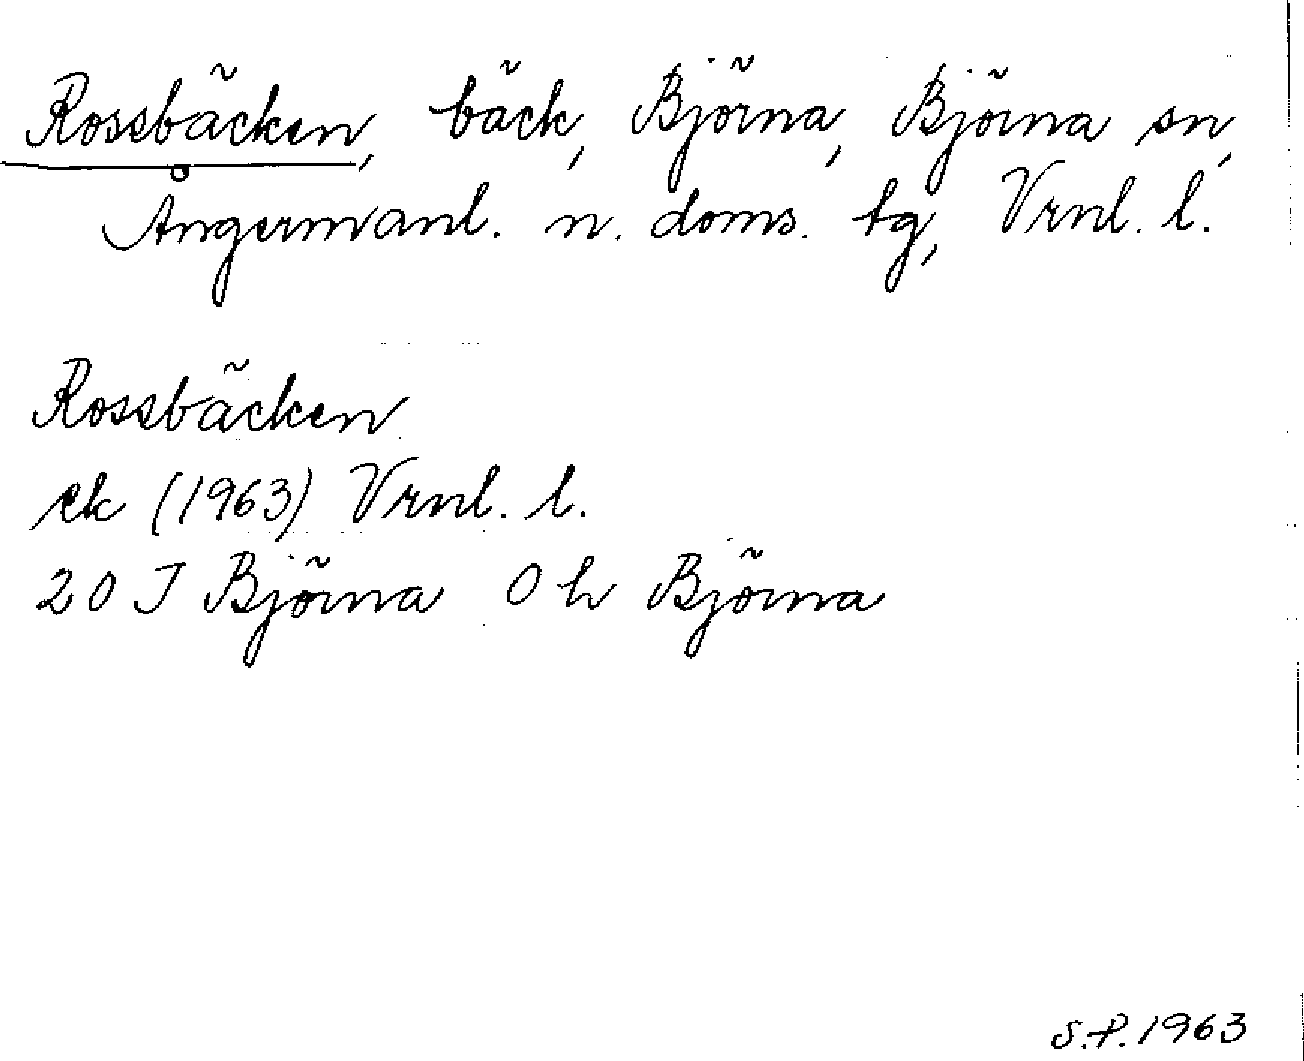 Rossbäcken, bäck, Björna, Björna sn,
Ångermanl. n. doms. tg, Vrnl. l.
Rossbäcken
ek (1963) Vrnl. l.
20 J Björna 0 h Björna
S.P. 1963